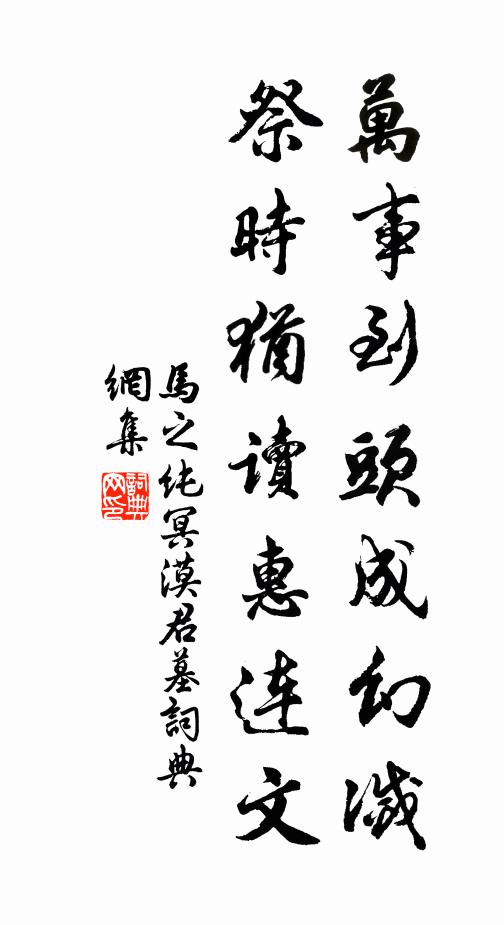 萬事到頭成幻滅
祭時猶讀惠连文
馬之纯冥漠君墓詞典
網集
詞典
网印